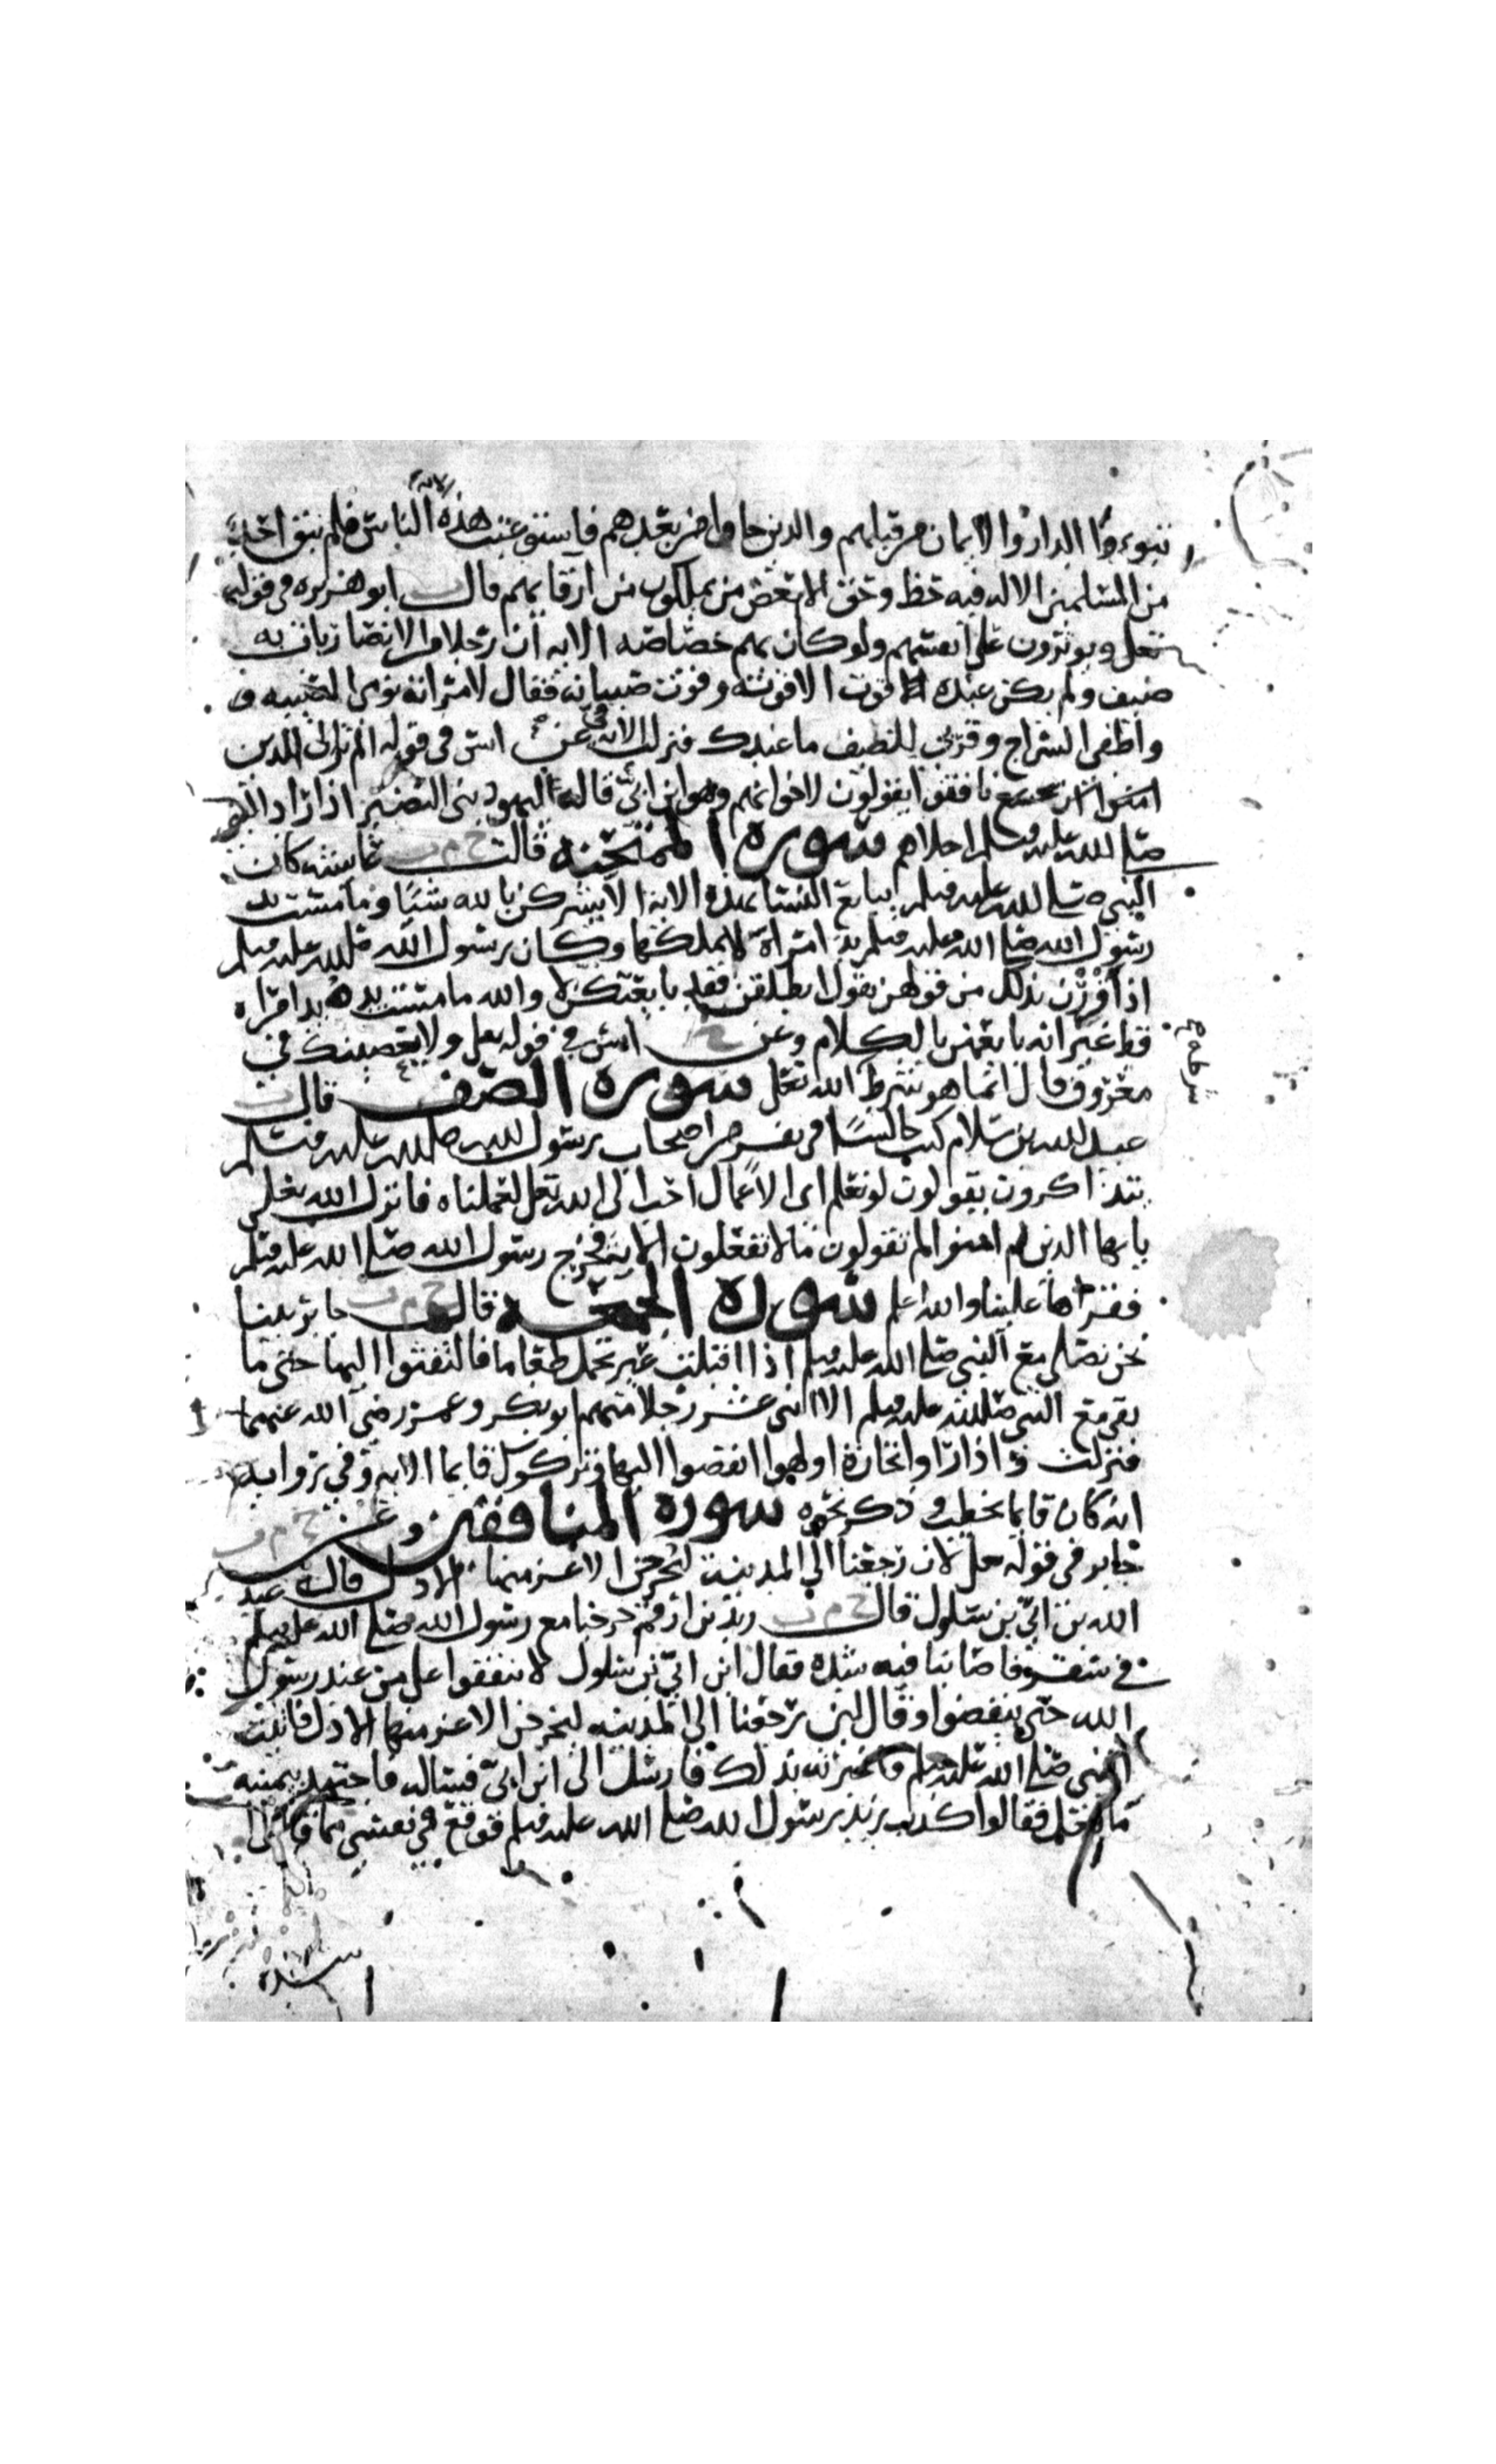 تبوءوا الدار والايمان من قبلهم والذين جاوا من بعدهم فاستوعبت هذه الاية الناس فلم يبق احد
من المسلمين الا له فيه حظ وحق الا بعض من يملكون من ارقايهم قال ابو هريرة في قوله
تعلى ويوثرون على انفسهم ولو كان بهم خصاصه الايه ان رجلا من الانصار بات به
ضيف ولم يكن عنده الا قوته وقوت صبيانه فقال لامراته نومي الصبيه
واطفي السراج وقربي للضيف ما عندك فنزلت الايه وعن انس في قوله الم تر الى الذين
نافقوا يقولون لاخوانهم وهو ابن ابي قاله ليهود بني النضير اذ اراد النبي
صلى الله عليه وسلم اجلاهم سورة الممتحنه قالت ح م ت عايشه كان
النبي صلى الله عليه وسلم يبايع النسا بهذه الايه لا يشركن بالله شيا وما مست يد
رسول الله صلى الله عليه وسلم يد امراة لا يملكها وكان رسول الله صلى الله عليه وسلم
اذا اقررن بذلك من قولهن يقول انطلقن فقد بايعتكن لا والله ما مست يده يد امراه
قط غير انه بايعهن بالكلام وعن انس في قوله تعلى ولا يعصينك في
معروف قال انما هو شرط الله تعلى سوره الصف قال ت
عبد الله بن سلام كنت جالسا في نفر من اصحاب رسول الله صلى الله عليه وسلم
يتذاكرون يقولون لو نعلم اي الاعمال احب الى الله تعلى لعملناه فانزل الله تعلى
يايها الذين امنوا لم تقولون ما لا تفعلون الاية فخرج رسول الله صلى الله عليه وسلم
فقراها علينا والله اعلم سورة الجمعه قال ح م ت جابر بينا
نحن نصلي مع النبي صلى الله عليه وسلم اذا اقبلت عير تحمل طعاما فالتفتوا اليها حتى ما
بقي مع النبي صلى الله عليه وسلم الا اثنى عشر رجلا منهم ابو بكر وعمر رضي الله عنهما
فنزلت واذا راوا تجارة او لهوا انفضوا اليها وتركوك قايما الايه وفي روايه
انه كان قايما يخطب وذكر نحوه سورة المنافقين وعن ح م ت
جابر في قوله تعلى لان رجعنا الى المدينة ليخرجن الاعز منها الاذل قاله عبد
الله بن ابي بن سلول قال ح م ت زيد بن ارقم خرجنا مع رسول الله صلى الله عليه وسلم
في سفر فاصابنا فيه شدة فقال ابن ابي بن سلول لا تنفقوا على من عند رسول
الله حتى ينفضوا وقال لين رجعنا الى المدينه ليخرجن الاعز منها الاذل فاتيت
النبي صلى الله عليه وسلم فاخبرته بذلك فارسل الى ابن ابي فساله فاجتهد يمينه
ما فعل فقالوا كذب زيد رسول الله صلى الله عليه وسلم فوقع في نفسي مما قالوا
شدة